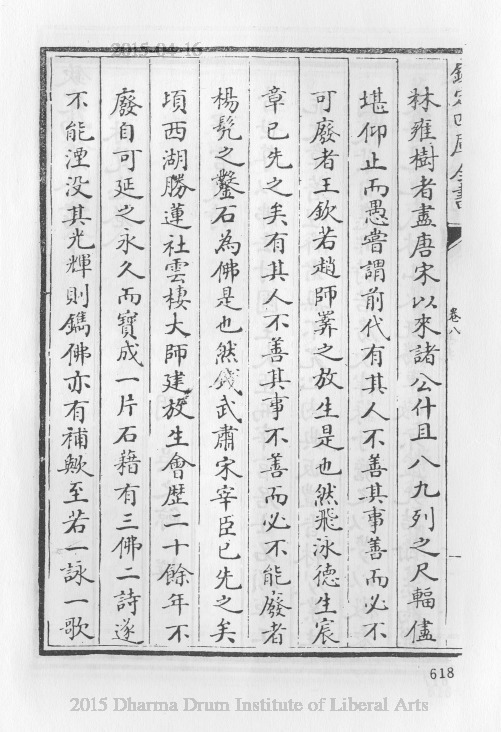 2015-04-16
欽定四庫全書
卷八
一
林雍樹者盡唐宋以來諸公什且八九列之尺輻儘
堪仰止而愚嘗謂前代有其人不善其事善而必不
可廢者王欽若趙師𢍰之放生是也然飛泳德生宸
章已先之矣有其人不善其事不善而必不能廢者
楊髡之鑿石為佛是也然錢武肅宋宰臣已先之矣
頃西湖勝蓮社雲棲大師建放生會歴二十餘年不
廢自可延之永久而寶成一片石藉有三佛二詩遂
不能湮没其光輝則鐫佛亦有補歟至若一詠一歌
618
2015 Dharma Drum Institute of Liberal Arts